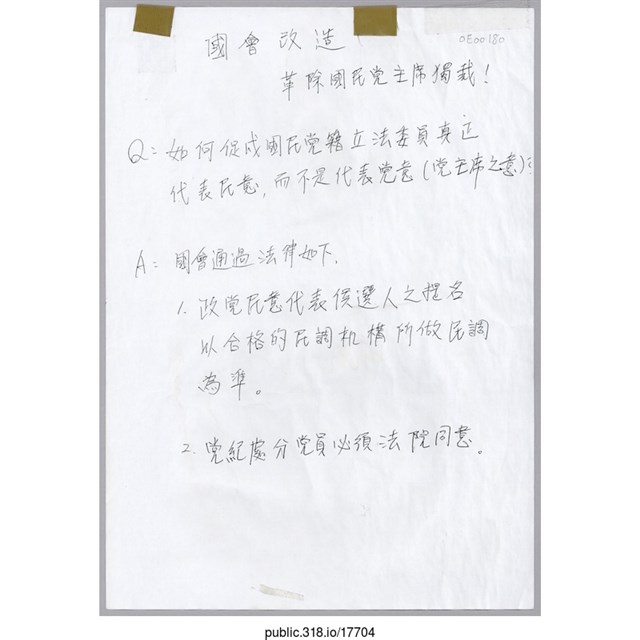 國會改造
0E00180
革除國民党主席獨裁！
Q：如何促成國民党籍立法委員真正
代表民意，而不是代表党意（党主席之意）？
A：國會通過法律如下，
1. 政党民意代表侯選人之提名
以合格的民調机構所做民調
為準。
2. 党紀處分党員必須法院同意。
public.318.io/17704